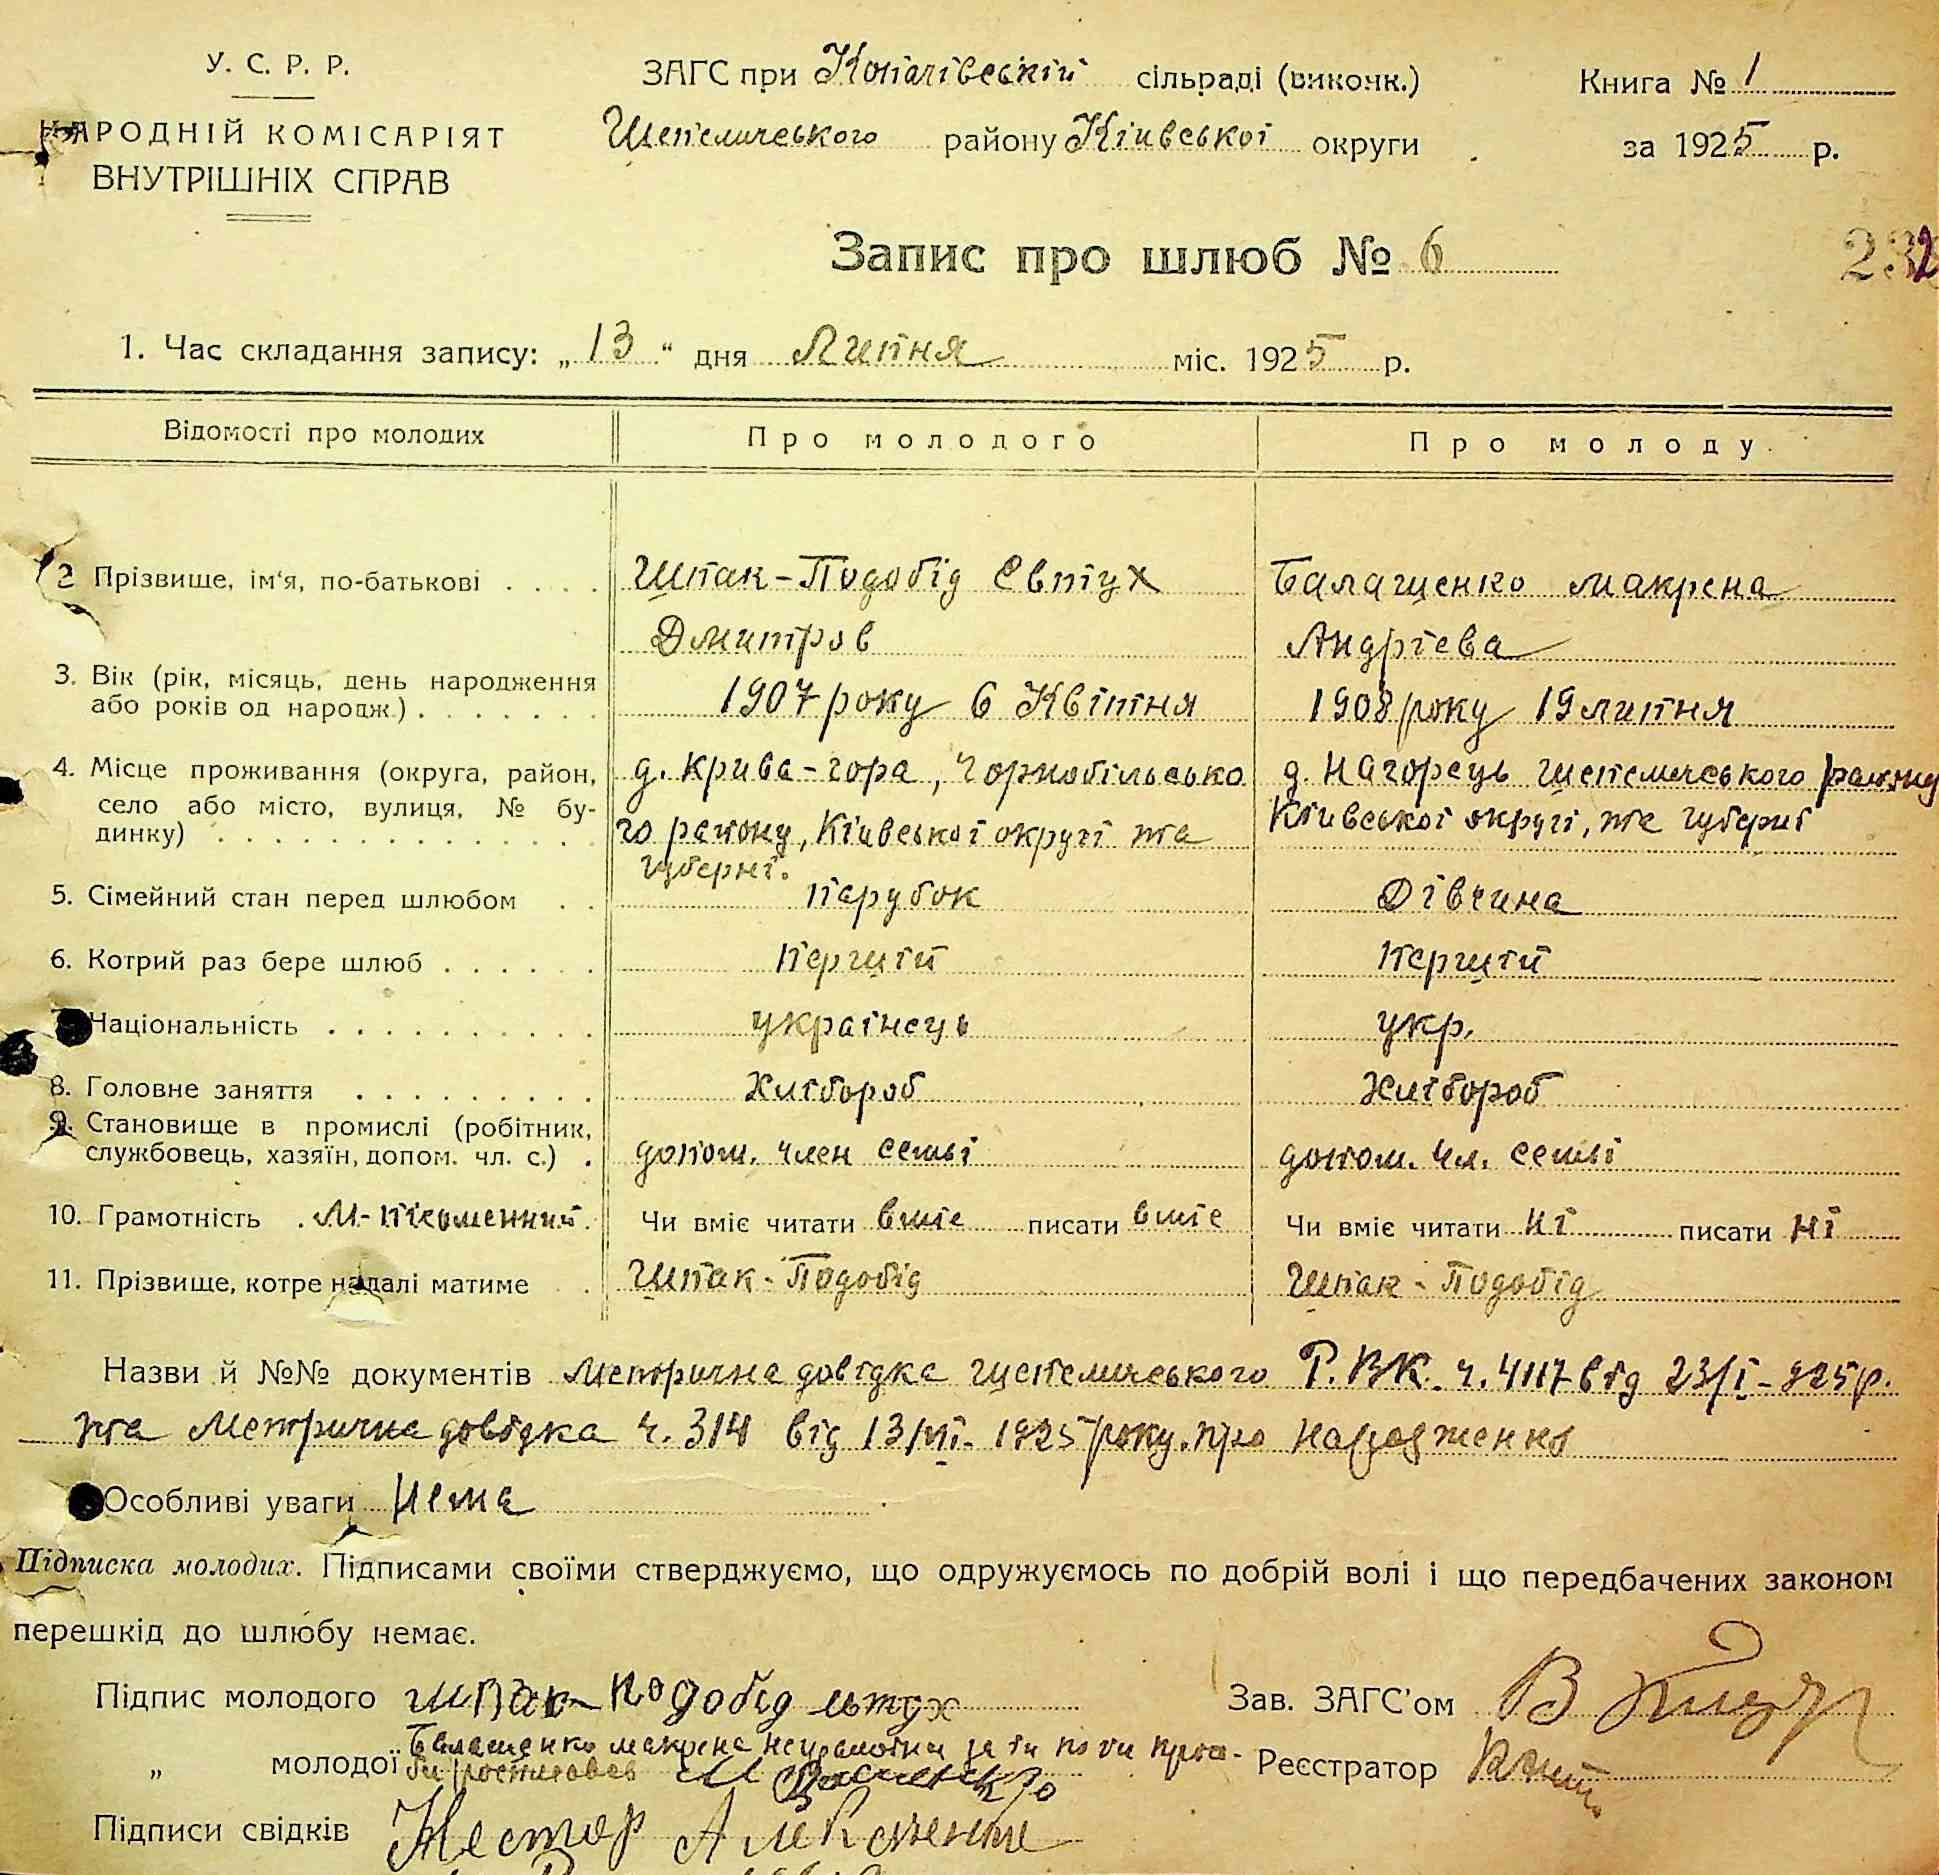 У. С. Р. Р.
НАРОДНІЙ КОМІСАРІЯТ
ВНУТРІШНІХ СПРАВ
ЗАГС при Копачівській сільраді (виконк.)
Шепелицького району Київської округи
Книга № 1
за 1925 р.
Запис про шлюб № 6
232
1. Час складання запису: „ 13 “ дня Липня міс. 1925 р.
Відомості про молодих
Про молодого
Про молоду
2 Прізвище, ім'я, по-батькові . . . . Шпак-Подобід Євтух Балашенко Макрена
Дмитров Андрієва
3. Вік (рік, місяць, день народження
або років од народж.) . . . . . . . 1907 року 6 Квітня 1908 року 19 липня
4. Місце проживання (округа, район, д. Крива-гора, Чорнобільсько д. Нагорець Шепелицького району
село або місто, вулиця, № бу- го району, Київської округі та Київської округі, та губерні
динку) . . . . . . . . . . . . . губерні.
5. Сімейний стан перед шлюбом . . парубок Дівчина
6. Котрий раз бере шлюб . . . . . . перший перший
Національність . . . . . . . . . . українець укр.
8. Головне заняття . . . . . . . . . Хлібороб Хлібороб
9. Становище в промислі (робітник,
службовець, хазяїн, допом. чл. с.) . допом. член семьі допом. чл. семьі
10. Грамотність . М-письменний. Чи вміє читати вміє писати вміє Чи вміє читати ні писати ні
11. Прізвище, котре надалі матиме . Шпак-Подобід Шпак-Подобід
Назви й №№ документів Метрична довідка Шепелицького Р.В.К. ч. 4117 від 23/І-925 р.
та Метрична довідка ч. 314 від 13/VII-1925 року. про народження
Особливі уваги нема
Підписка молодих. Підписами своїми стверджуємо, що одружуємось по добрій волі і що передбачених законом
перешкід до шлюбу немає.
Підпис молодого шпак-подобід
Зав. ЗАГС'ом
„ молодої Балашенко макрена неграмотна за
Реєстратор
Підписи свідків Нестор